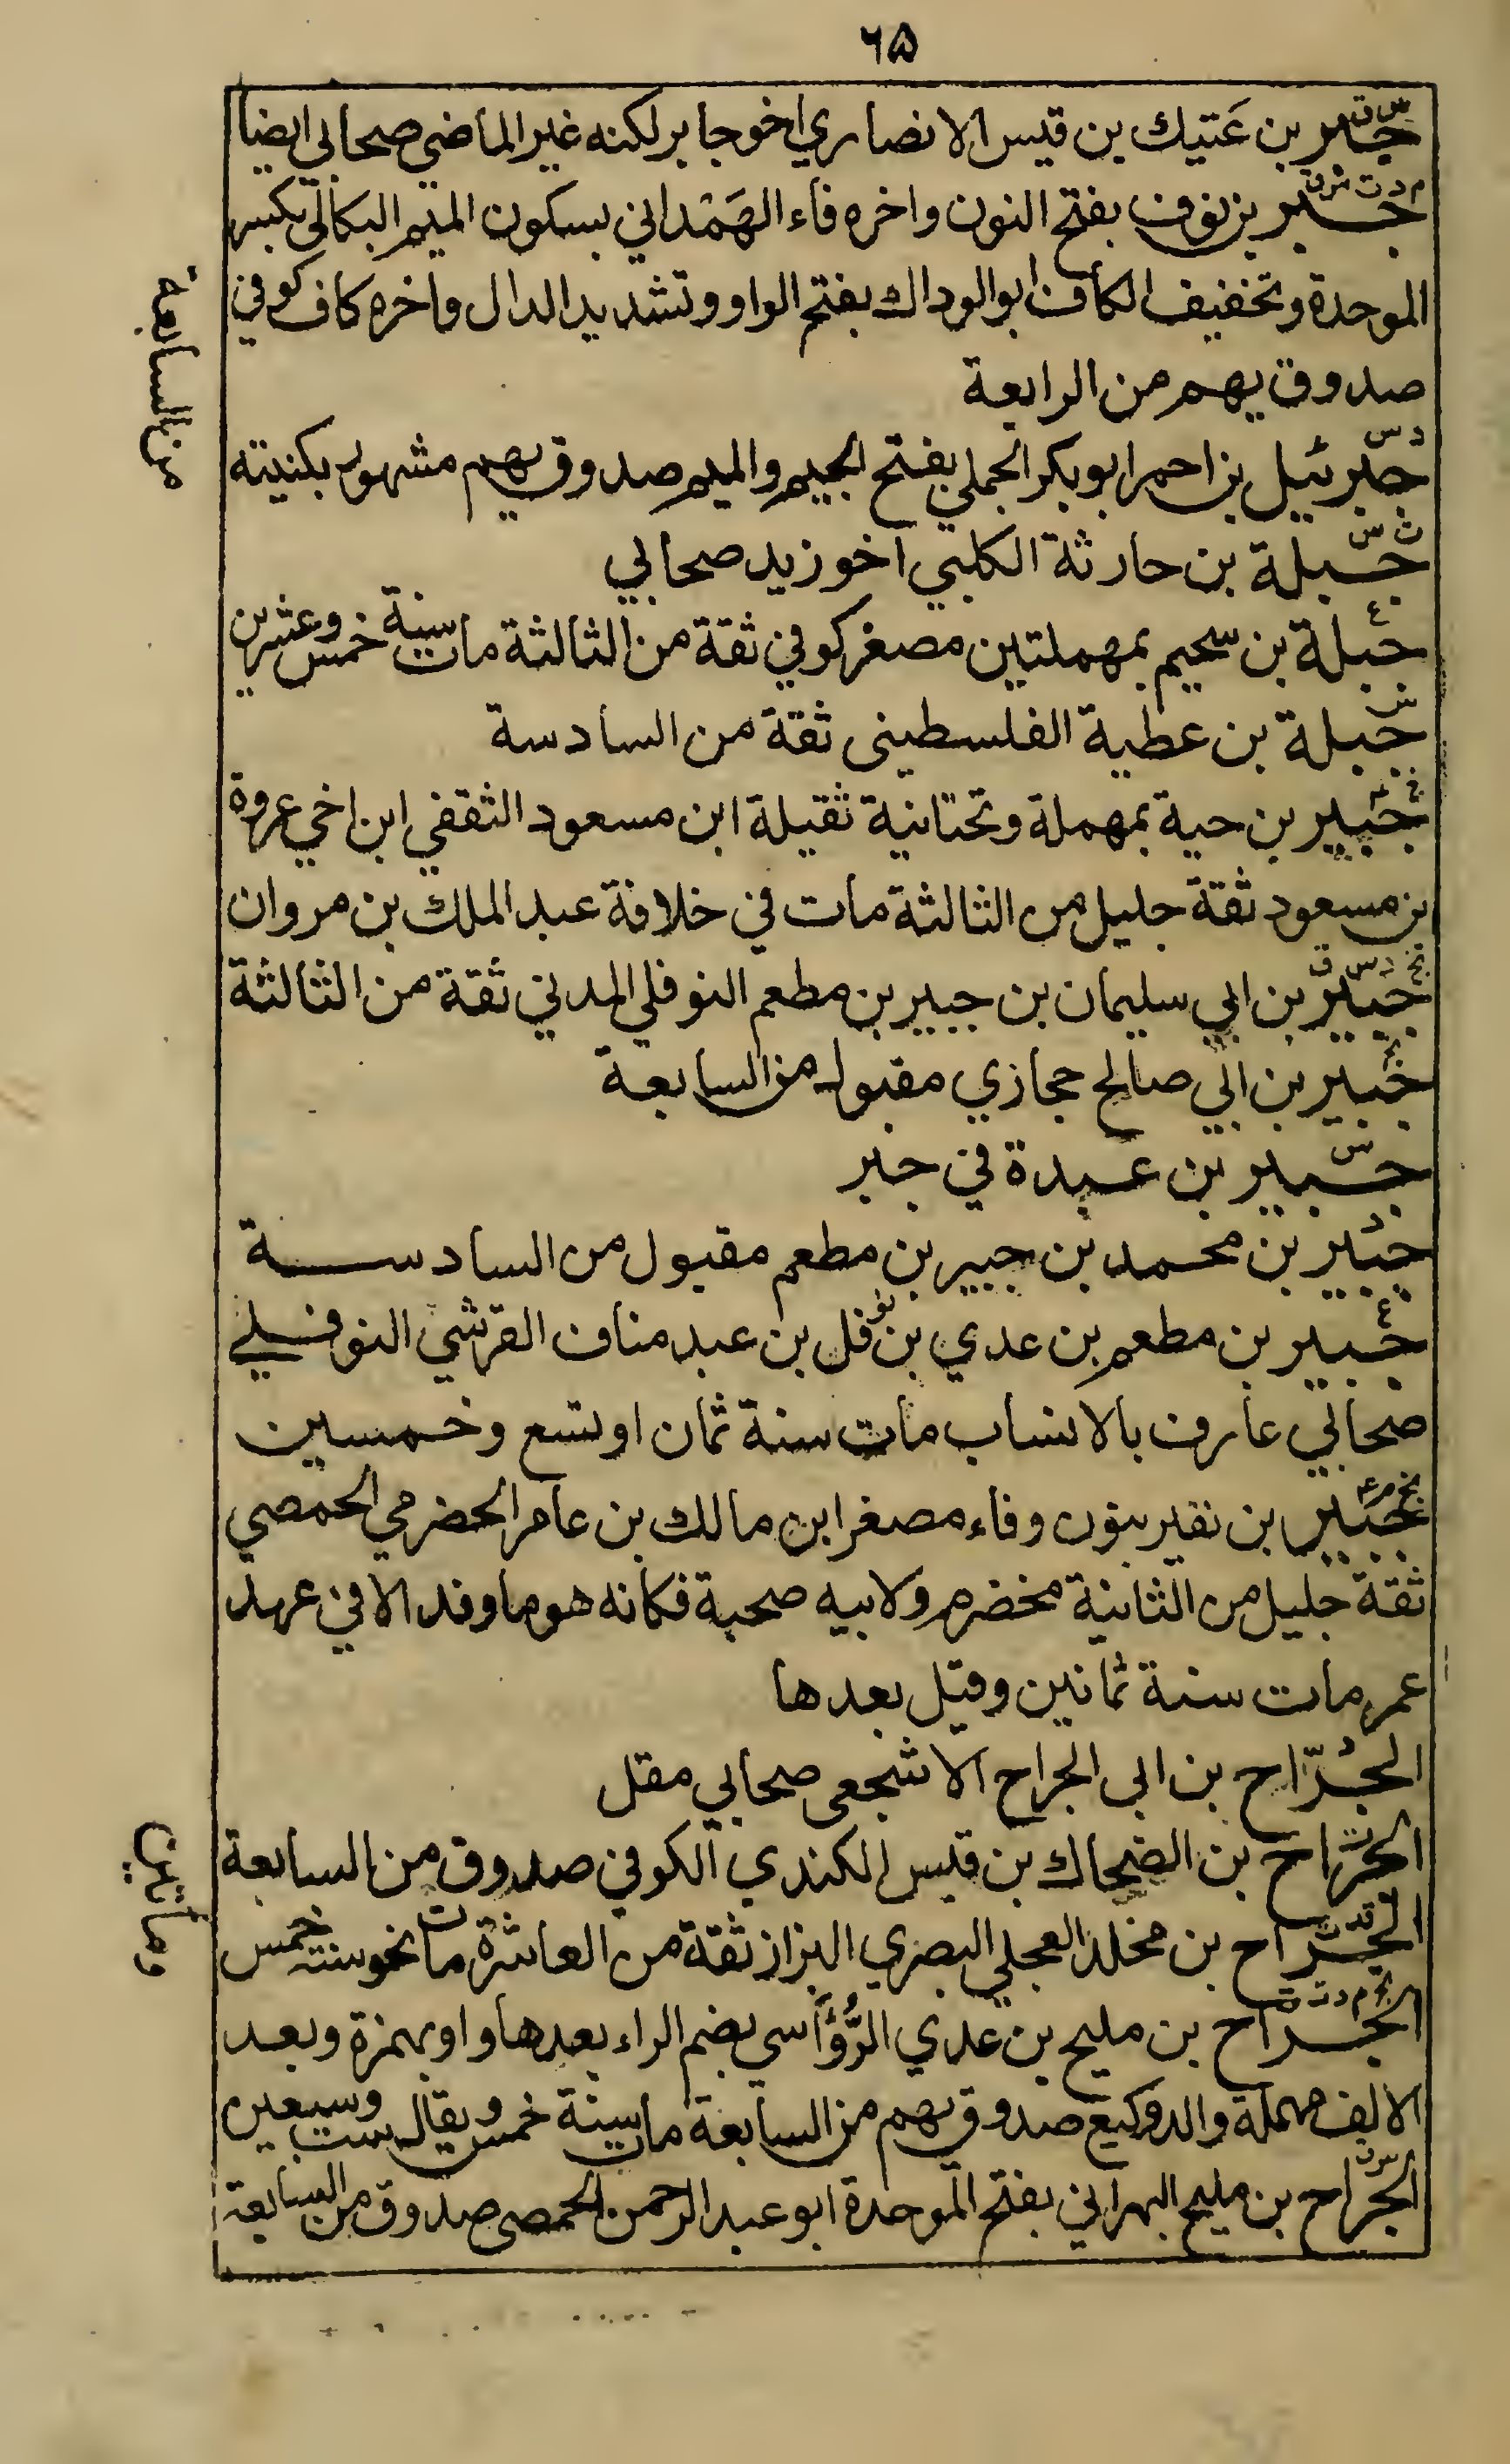 ٦٥
جبر بن عَتيك بن قيس الانصاري اخو جابر لكنه غير الماضي صحابي ايضا
س ق
جبر بن نوف بفتح النون واخره فاء الهَمْداني بسكون الميم البكالي بكسر
م د ت س ق
الموحدة وتخفيف الكاف ابو الوداك بفتح الواو وتشديد الدال واخره كاف كوفي
صدوق يهم من الرابعة
جبرئيل بن احمر ابو بكر الجملي بفتح الجيم والميم صدوق يهم مشهور بكنيته
د س
من السابعة
جبلة بن حارثة الكلبي اخو زيد صحابي
ت س
جبلة بن سحيم بمهملتين مصغر كوفي ثقة من الثالثة مات سنة خمس وعشرين
ع
جبلة بن عطية الفلسطيني ثقة من السادسة
س
جبير بن حية بمهملة وتحتانية ثقيلة ابن مسعود الثقفي ابن اخي عروة
خ ع
بن مسعود ثقة جليل من الثالثة مات في خلافة عبد الملك بن مروان
جبير بن ابي سليمان بن جبير بن مطعم النوفلي المدني ثقة من الثالثة
بخ د س ق
جبير بن ابي صالح حجازي مقبول من السابعة
بخ
جبير بن عبيدة في جبر
س
جبير بن محمد بن جبير بن مطعم مقبول من السادسة
د
جبير بن مطعم بن عدي بن نوفل بن عبد مناف القرشي النوفلي
ع
صحابي عارف بالانساب مات سنة ثمان او تسع وخمسين
جبير بن نفير بنون وفاء مصغرا بن مالك بن عامر الحضرمي الحمصي
بخ م ع
ثقة جليل من الثانية مخضرم ولابيه صحبة فكانه هو ما وفد الا في عهد
عمر مات سنة ثمانين وقيل بعدها
الجرّاح بن ابي الجراح الاشجعي صحابي مقل
د
الجراح بن الضحاك بن قيس الكندي الكوفي صدوق من السابعة
ت
الجراح بن مخلد العجلي البصري البزاز ثقة من العاشرة مات نحو سنة خمس
قد ت
ومائتين
الجراح بن مليح بن عدي الرُّؤَاسي بضم الراء بعدها واو بهمزة وبعد
بخ م د ت ق
الالف مهملة والد وكيع صدوق يهم من السابعة مات سنة خمس ويقال ست وسبعين
الجراح بن مليح البهراني بفتح الموحدة ابو عبد الرحمن الحمصي صدوق من السابعة
س ق